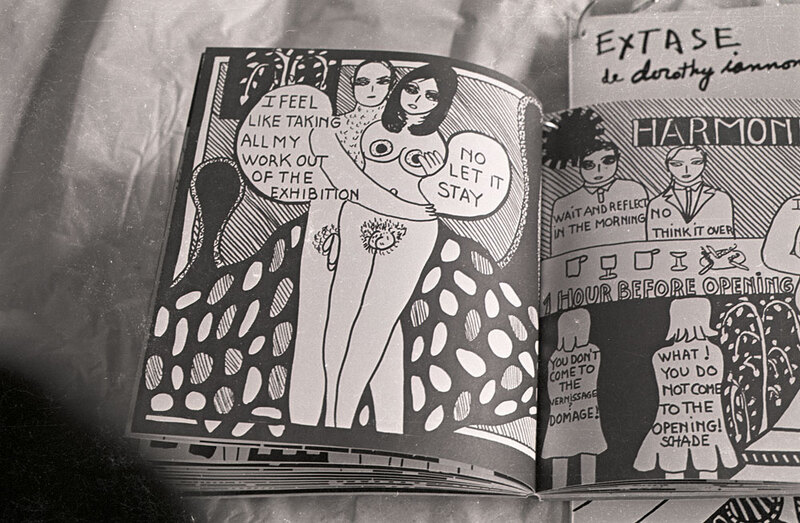 I FEEL
LIKE TAKING
ALL MY
WORK OUT
OF THE
EXHIBITION
NO
LET IT
STAY
EXTASE
de dorothy iannon
HARMONI
WAIT AND REFLECT
IN THE MORNING
NO
THINK IT OVER
1 HOUR BEFORE OPENING
YOU DON'T
COME TO
THE
VERNISSAGE?
DOMAGE!
WHAT!
YOU DO
NOT COME
TO THE
OPENING!
SCHADE